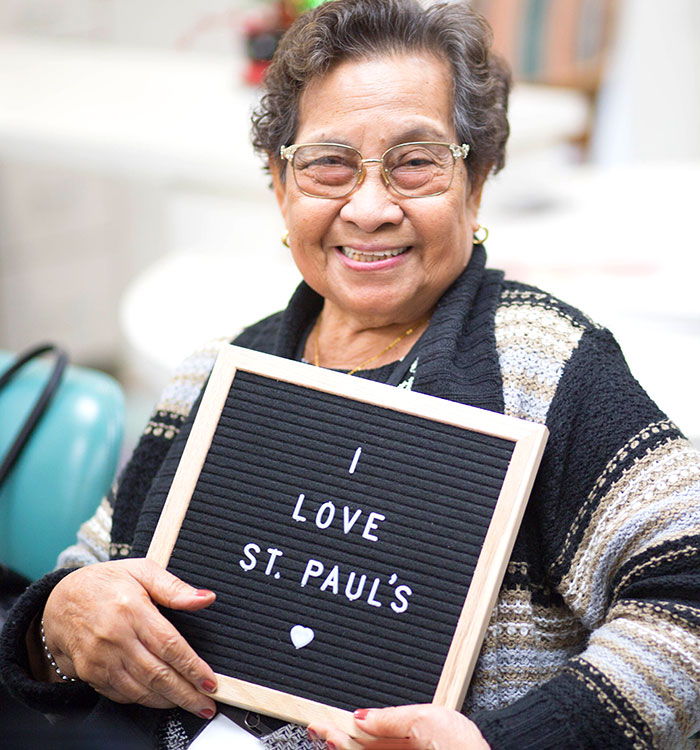 I
LOVE
ST. PAUL'S